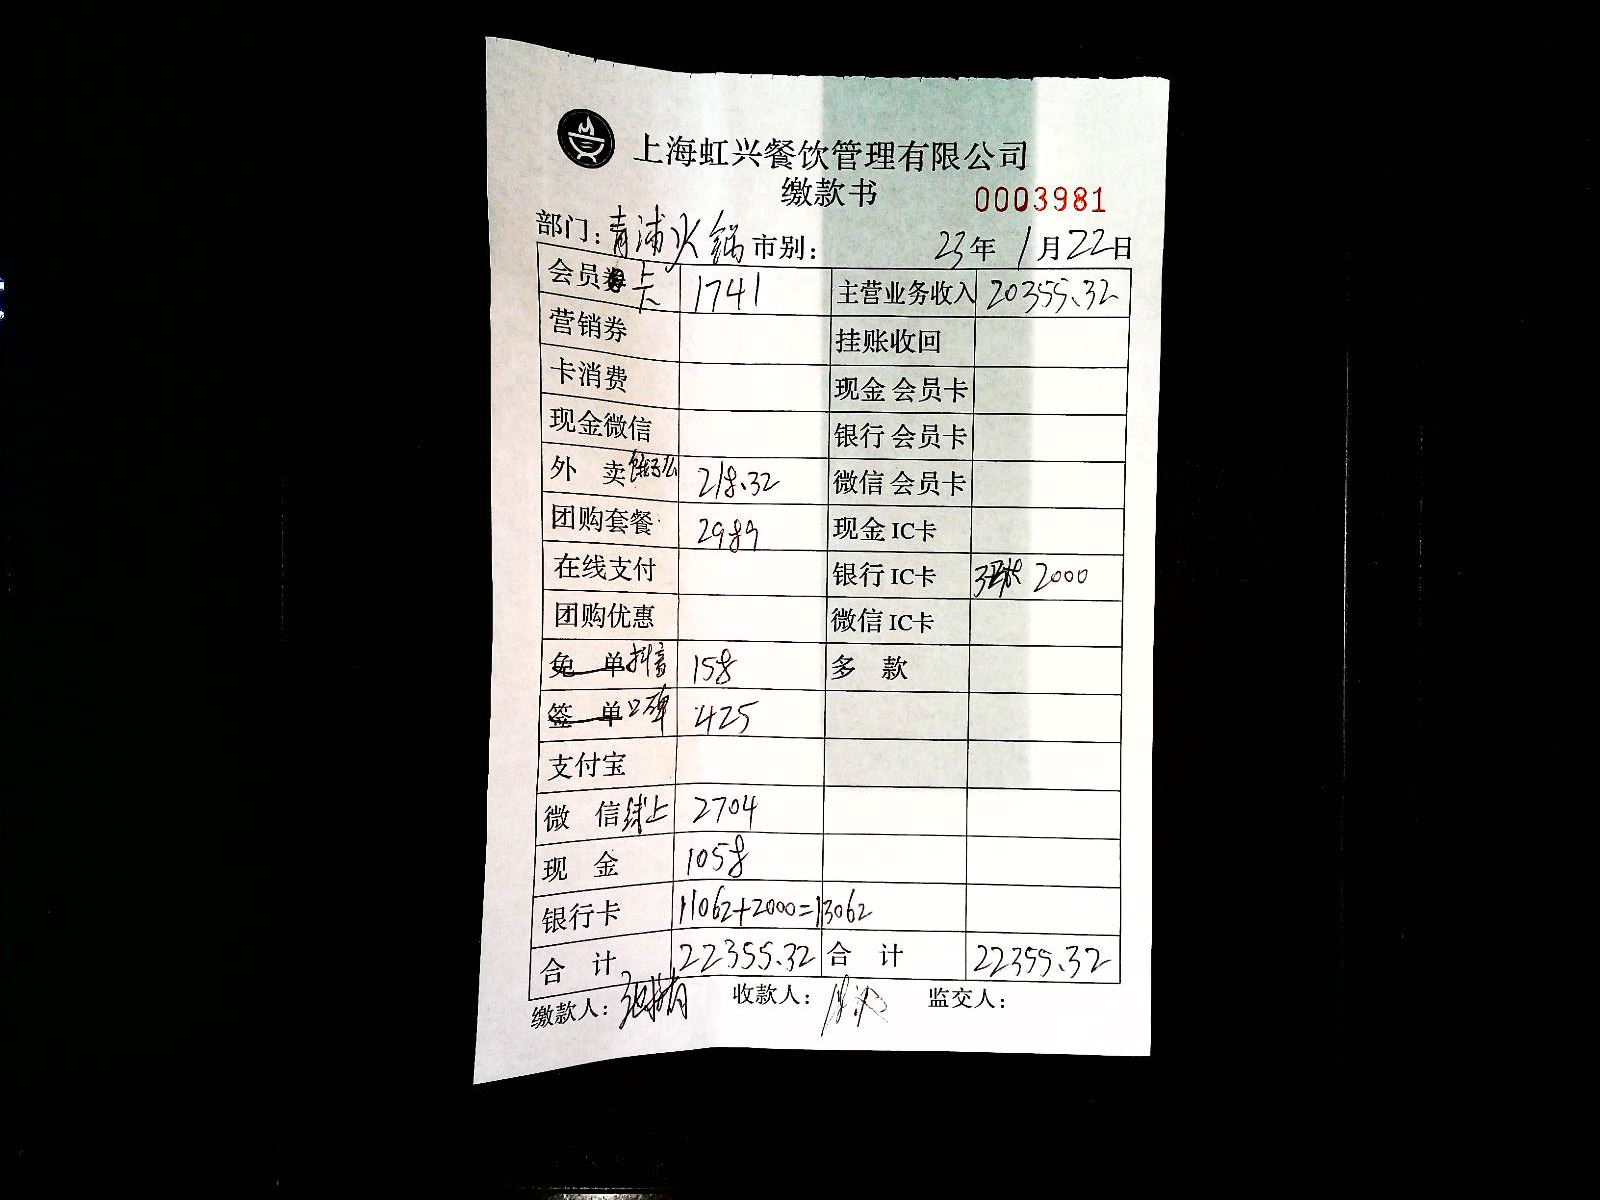 上海虹兴餐饮管理有限公司
缴款书 0003981
部门：青浦火锅 市别： 23年 1月22日
会员卡 1741 主营业务收入 20355.32
营销券 挂账收回
卡消费 现金 会员卡
现金微信 银行 会员卡
外 卖 饿了么 218.32 微信 会员卡
团购套餐 2989 现金 IC卡
在线支付 银行 IC卡 2000
团购优惠 微信 IC卡
免 单 抖音 158 多 款
签 单 口碑 425
支付宝
微 信 线上 2704
现 金 1058
银行卡 11062+2000=13062
合 计 22355.32 合 计 22355.32
缴款人： 收款人： 监交人：